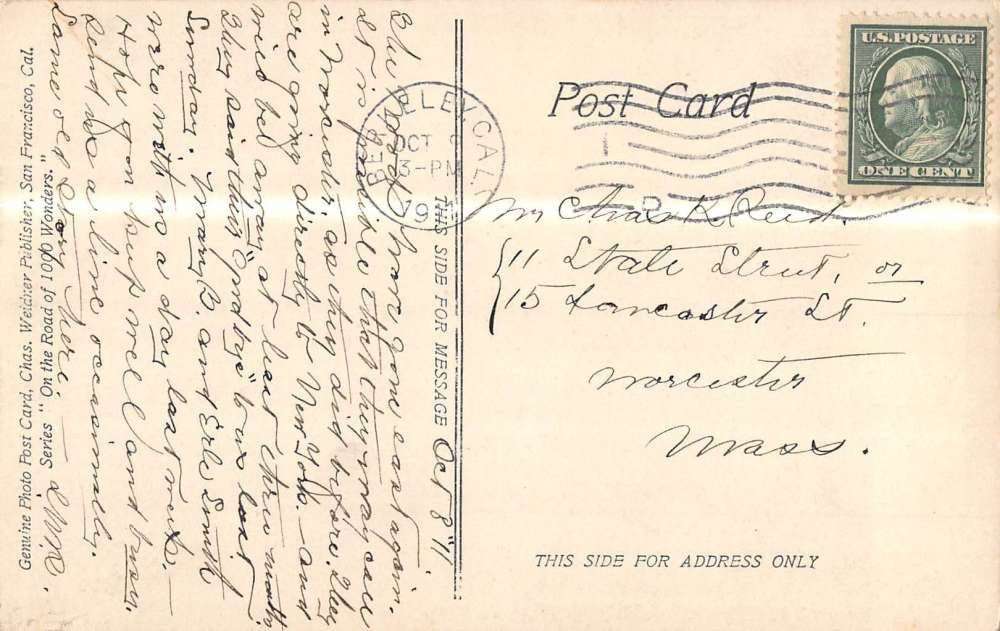 Post Card
U.S. POSTAGE
ONE CENT
BERKELEY, CAL.
OCT 8
3-PM
1911
Mr Chas K. Reed.
11 State Street, or
15 Lancaster St.
Worcester
Mass.
THIS SIDE FOR ADDRESS ONLY
THIS SIDE FOR MESSAGE Oct 8 '11
have gone east again.
It is possible that they may call
in Worcester, as they did before. They
are going directly to New York. — and
will be away at least three months
They said their "good bye" to us last
Sunday. Mary B. and Erle Smith
were with us a day last week. —
Hope you keep well and busy.
Send us a line occasionally.
Same old story here. —
Genuine Photo Post Card, Chas. Weidner Publisher, San Francisco, Cal.
Series "On the Road of 1000 Wonders."